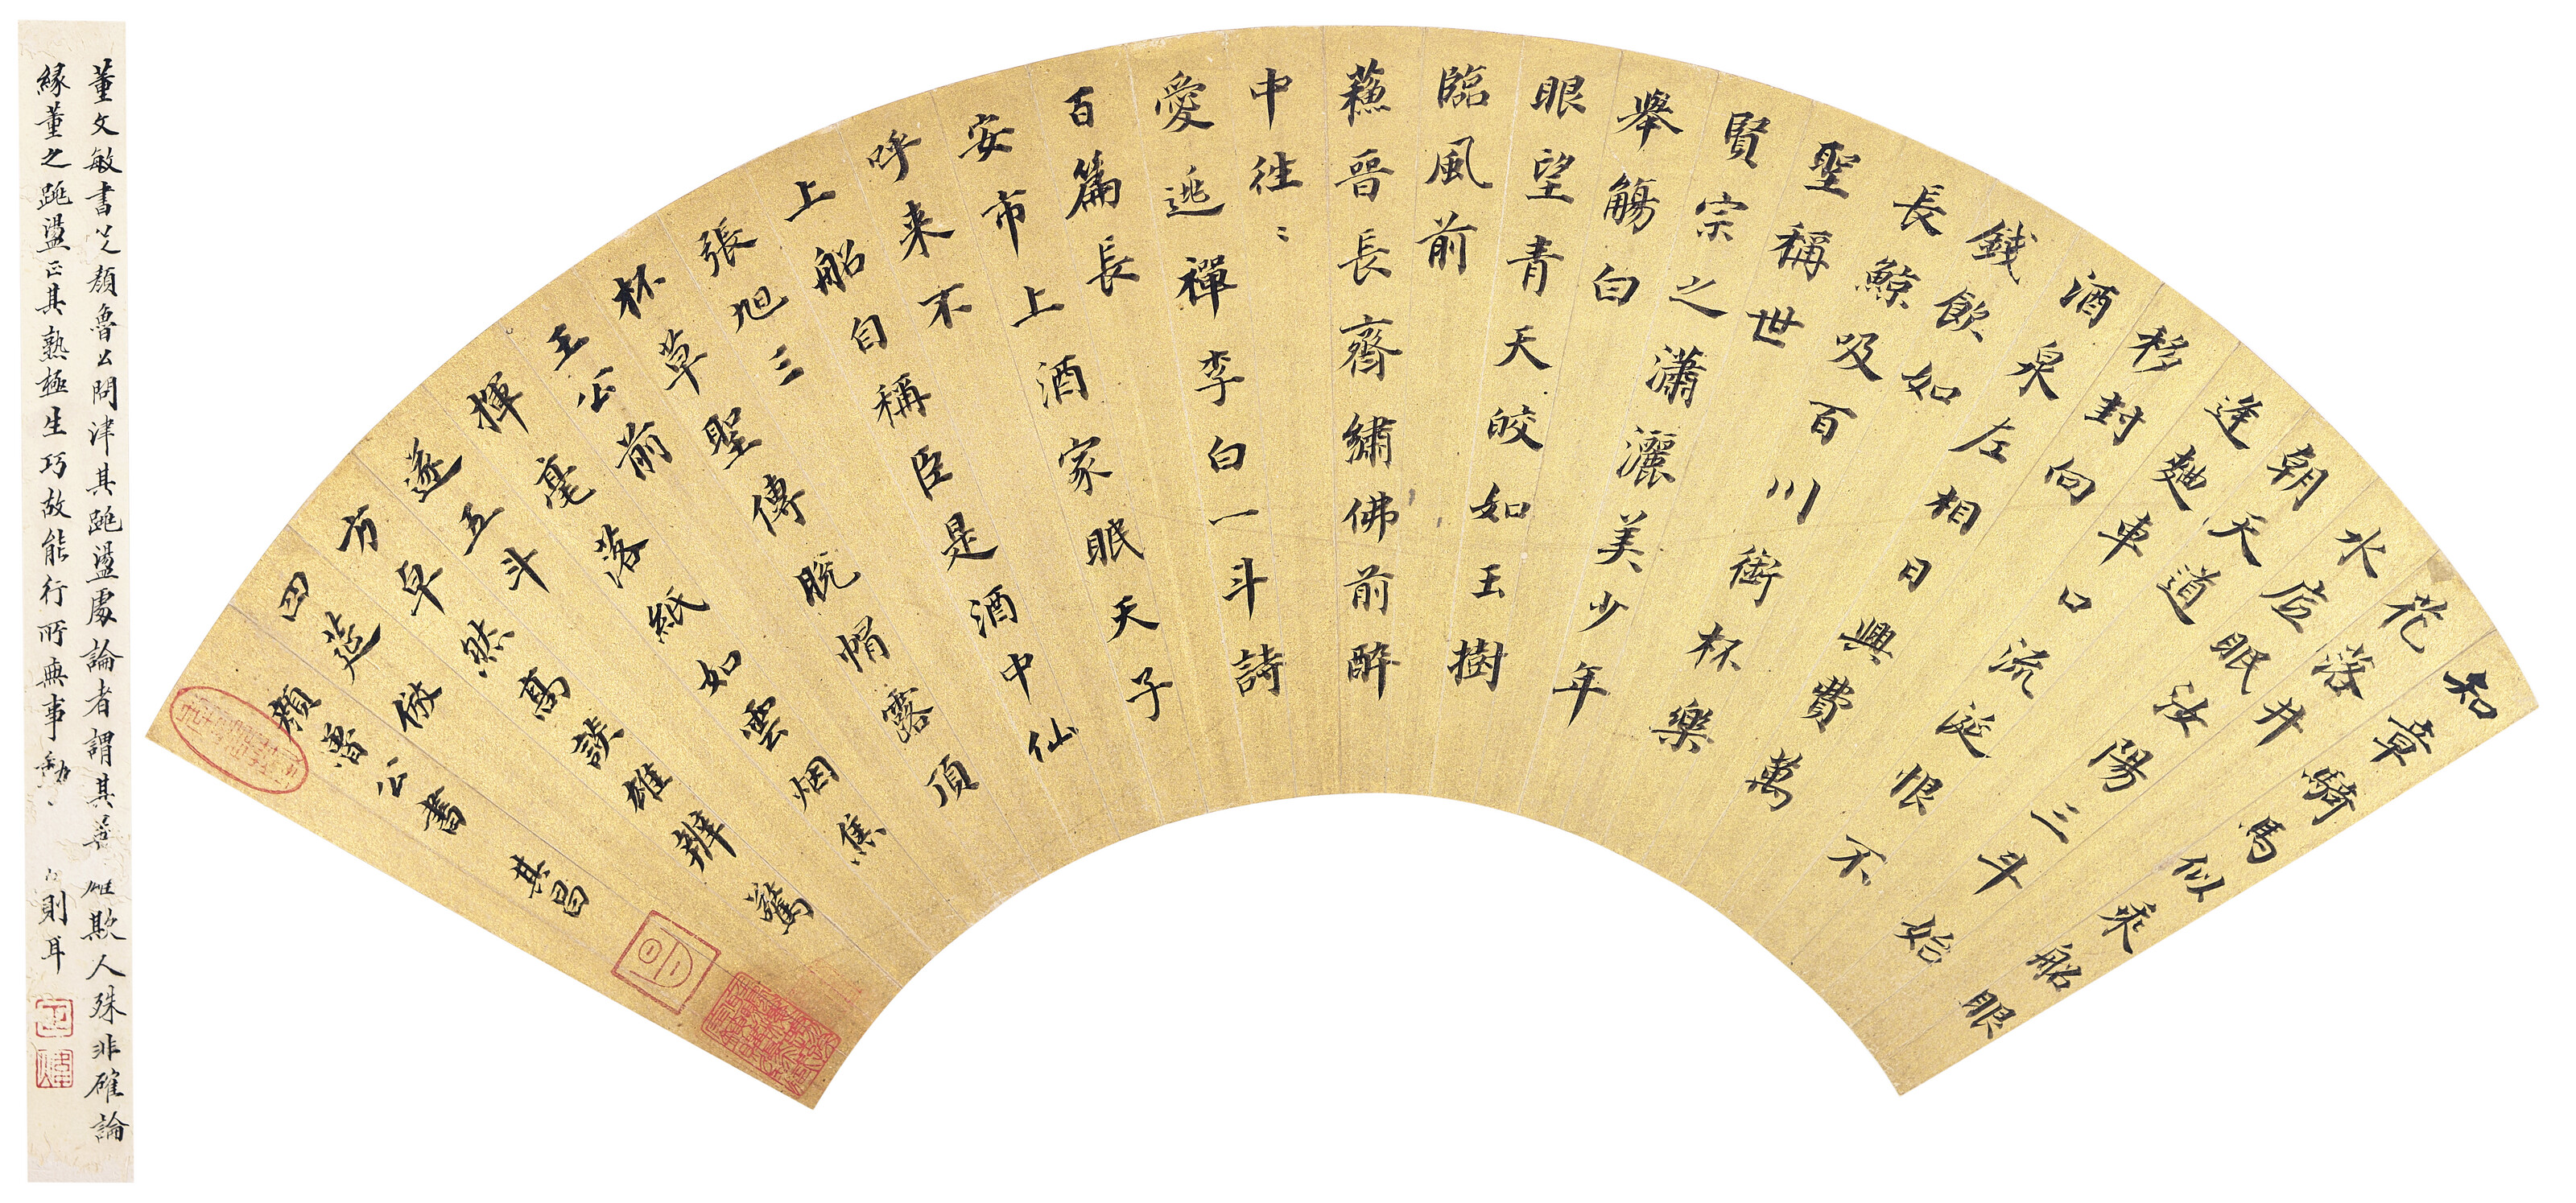 知章騎馬似乘船眼
花落井
水底眠汝陽三斗始
朝天道
逢麯車口流涎恨不
移封向
酒泉左相日興費萬
錢飲如
長鯨吸百川銜杯樂
聖稱世
賢宗之瀟灑美少年
舉觴白
眼望青天皎如玉樹
臨風前
蘇晉長齋繡佛前醉
中往〻
愛逃禪李白一斗詩
百篇長
安市上酒家眠天子
呼来不
上船自稱臣是酒中仙
張旭三
杯草聖傳脫帽露頂
王公前
揮毫落紙如雲烟焦
遂五斗
方卓然高談雄辨驚
四筵倣
顏魯公書 其昌
董文敏書從顏魯公問津其跳盪處論者謂其英雄欺人殊非確論
緣董之跳盪正其熟極生巧故能行所無事動〻則耳